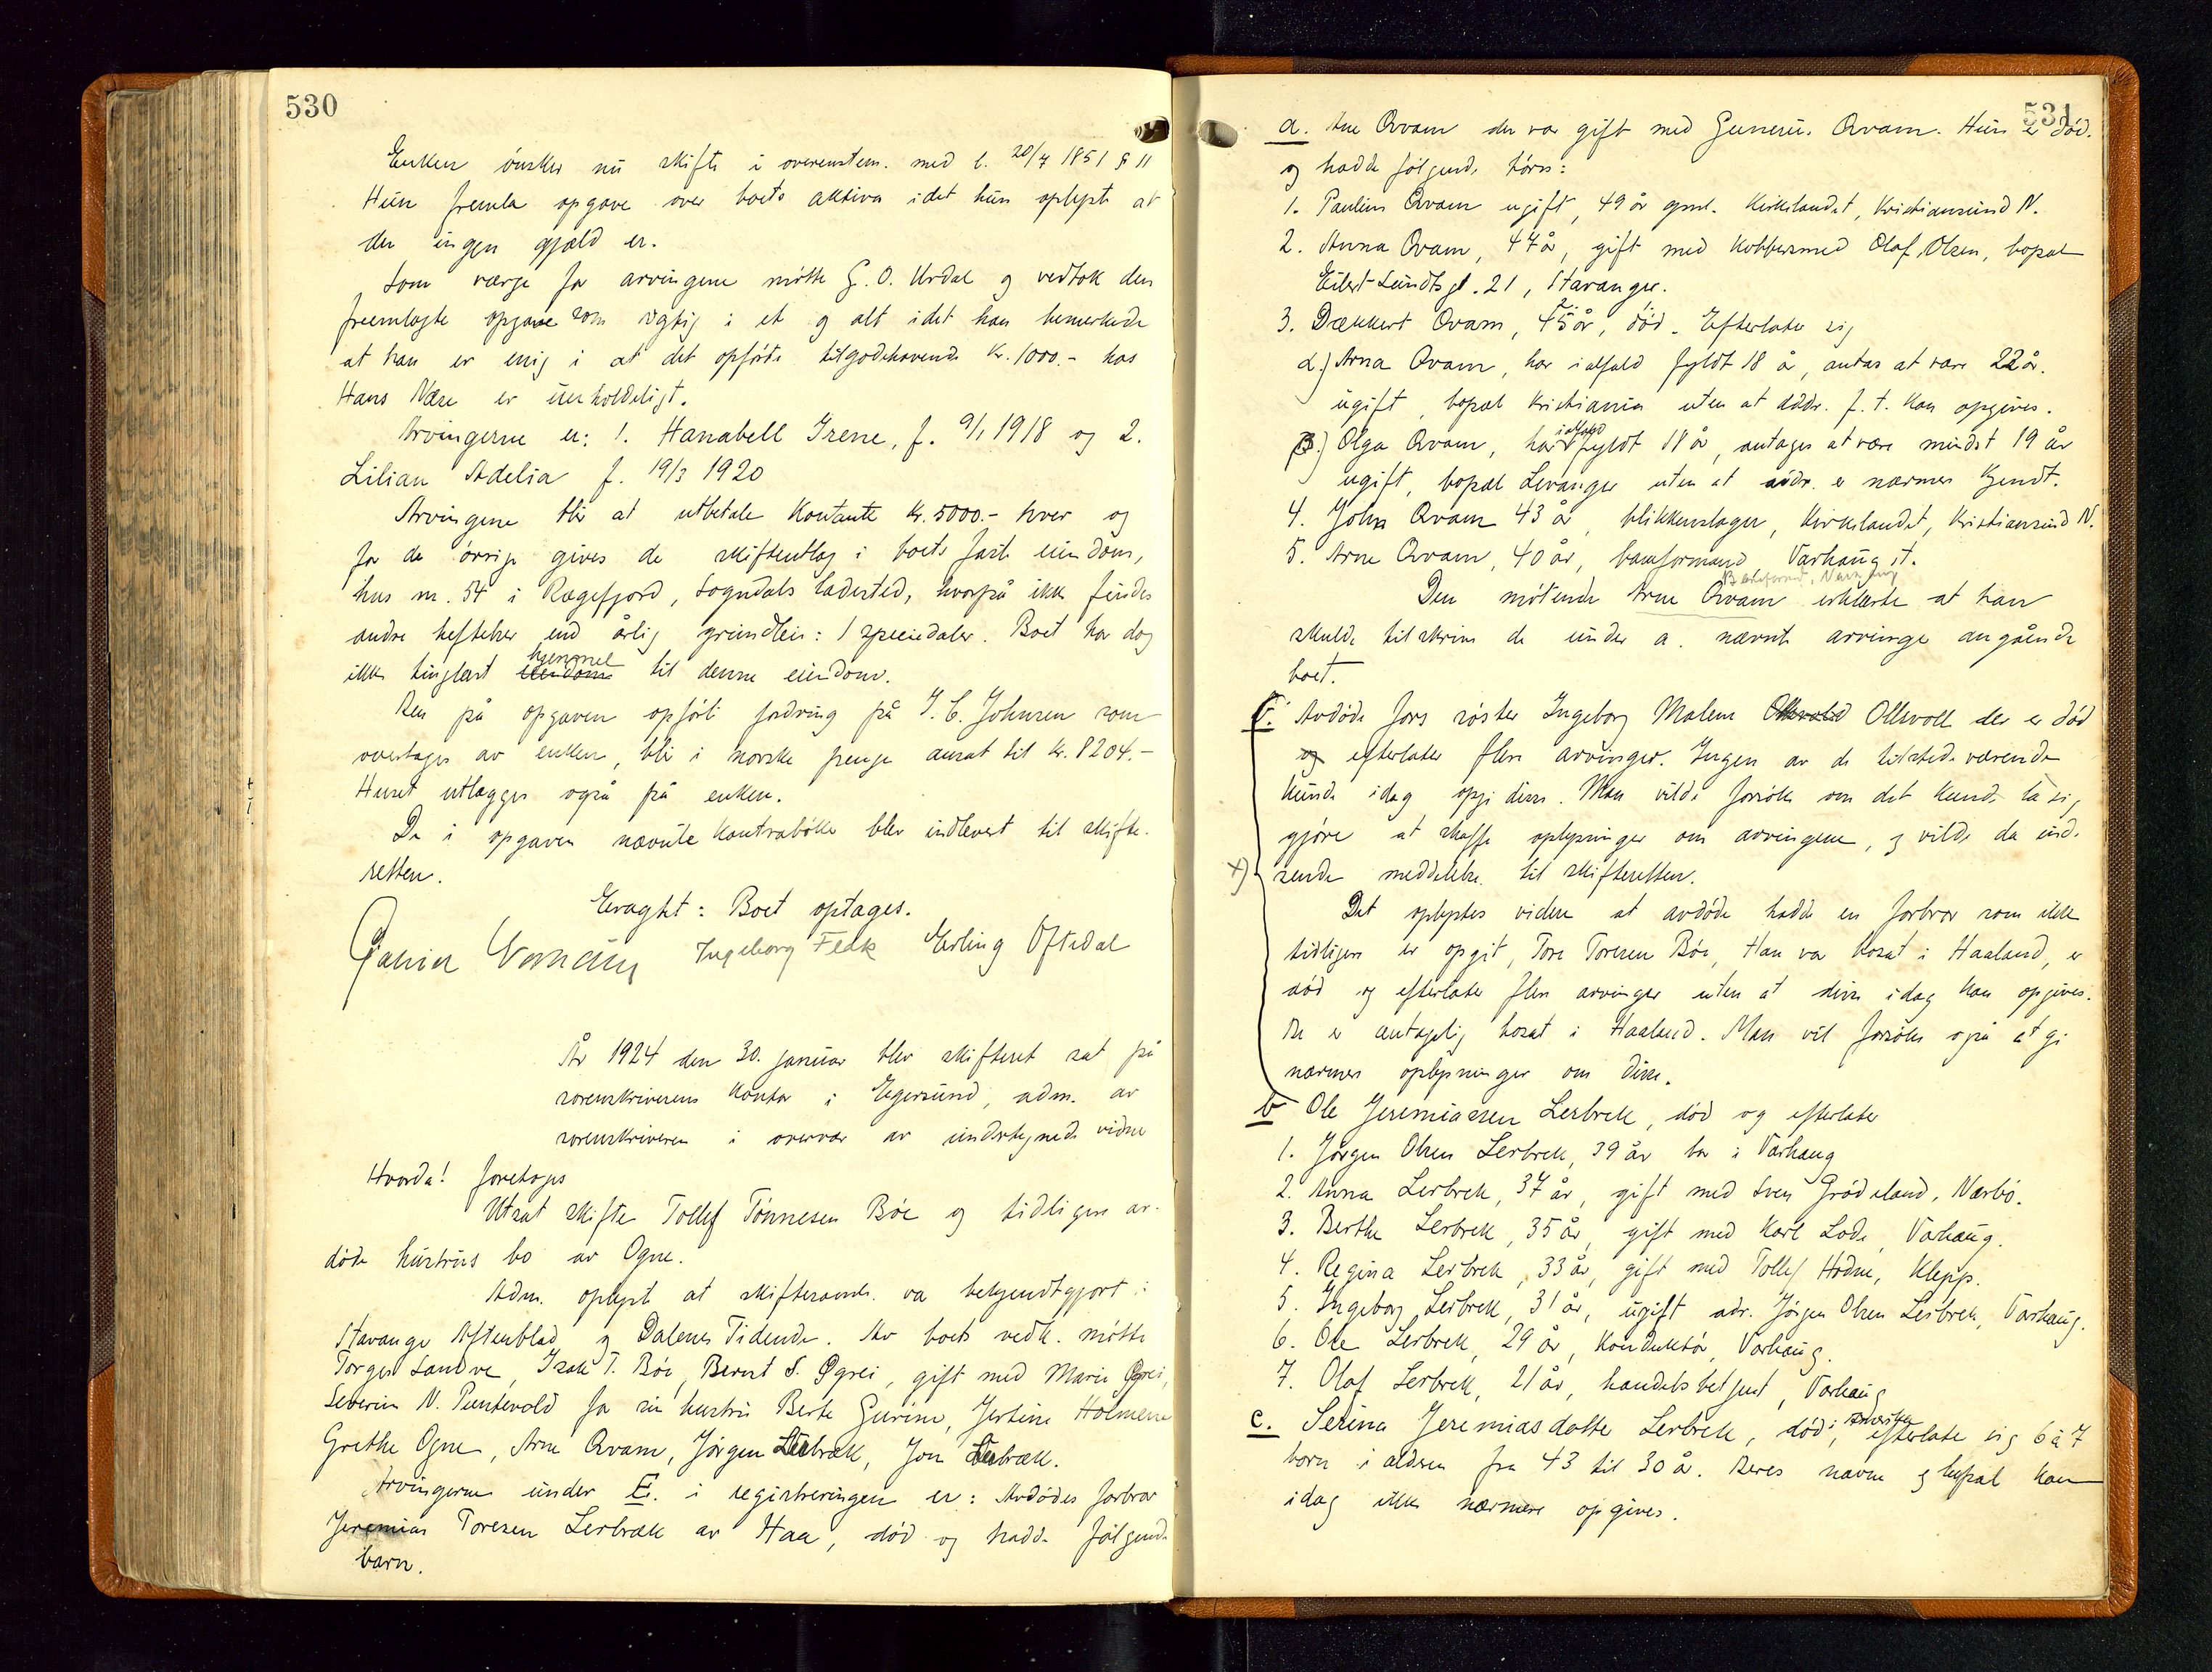 530
Enken ønsker nu skifte i overenstem. med l. 20/7 1851 § 11
Hun fremla opgave over boets aktiva idet hun oplyste at
der ingen gjæld er.
Som værge for arvingene møtte G. O. Urdal og vedtok den
fremlagte opgave som rigtig i et og alt idet han bemerkede
at han er enig i at det opførte tilgodehavende Kr. 1000.- hos
Hans Næse er uerholdeligt.
Arvingerne er: 1. Hanabell Irene, f. 9/1 1918 og 2.
Lilian Adelia f. 19/3 1920
Arvingene blir at utbetale kontante kr. 5000.- hver og
for de øvrige gives de skifteutlæg i boets faste eiendom,
hus nr. 54 i Rægefjord, Sogndals ladested, hvorpå ikke findes
andre heftelser end årlig grundleie: 1 speciedaler. Boet har dog
ikke tinglæst eiendoms hjemmel til denne eiendom.
Den på opgaven opførte fordring på J. C. Johnsen som
overtages av enken, blir i norske penge ansat til kr. 8204.-
Huset utlægges også på enken.
De i opgaven nævnte kontrabøker blev indlevert til skifte-
retten.
Eragtet: Boet optages.
Ingeborg Feek Erling Oftedal
År 1924 den 30. januar blev skifteret sat på
sorenskriverens kontor i Egersund, adm. av
sorenskriveren i overvær av undertegnede vidne
Hvorda! foretoges
Utsat skifte Tollef Tønnesen Bøe og tidligere av-
døde hustrus bo av Ogne.
Adm. oplyste at skiftesaml. var bekjendtgjort i
Stavanger Aftenblad og Dalenes Tidende. Av boets vedk. møtte
Torger Sandve, Isak T. Bøe, Bernt S. Øgrei, gift med Marie Øgrei,
Severin N. Puntevold for sin hustru Berte Gurine, Jertine Holmene
Grethe Ogne, Arne Qvam, Jørgen Lerbræk, Jon Lerbræk.
Arvingerne under E. i registreringen er: Avdødes farbror
Jeremias Toresen Lerbræk av Haa, død og hadde følgende
barn.
531
a. Ane Qvam der var gift med Gunerius Qvam. Hun er død.
og hadde følgende børn:
1. Pauline Qvam ugift, 49 år gml. Kirkelandet, Kristiansund N.
2. Anna Qvam, 47 år, gift med kobbersmed Olaf Olsen, bopæl
Eilert Sundts gt. 21, Stavanger.
3. Dækkert Qvam, 45 år, død. Efterlater sig
α.) Arna Qvam, har ialfald fyldt 18 år, antas at være 22 år.
ugift, bopæl Kristiania uten at addr. f. t. kan opgives.
β.) Olga Qvam, har ialfald fyldt 18 år, antages at være mindst 19 år
ugift, bopæl Levanger uten at addr. er nærmere kjendt.
4. John Qvam 43 år, blikkenslager, Kirkelandet, Kristiansund N.
5. Arne Qvam, 40 år, baneformand Varhaug st.
Baneformand, Varhaug
Den møtende Arne Qvam erklærte at han
skulde tilskrive de under a. nævnte arvinge angående
boet.
F. Avdøde fars søster Ingeborg Malene Ollsvold Ollsvoll der er død
og efterlater flere arvinger. Ingen av de tilstedeværende
kunde idag opgi disse. Man vilde forsøke om det kunde la sig
gjøre at skaffe oplysninger om arvingene, og vilde da ind-
x) sende meddelelse til skifteretten.
Det oplystes videre at avdøde hadde en farbror som ikke
tidligere er opgit, Tore Toresen Bøe, Han var bosat i Haaland, er
død og efterlater flere arvinger uten at disse idag kan opgives.
De er antagelig bosat i Haaland. Man vil forsøke også at gi
nærmere oplysninger om disse.
b Ole Jeremiassen Lerbrek, død og efterlater
1. Jørgen Olsen Lerbrek, 39 år bor i Varhaug
2. Anna Lerbrek, 37 år, gift med Sven Grødeland, Nærbø.
3. Berthe Lerbrek, 35 år, gift med Karl Lode, Varhaug.
4. Regina Lerbrek, 33 år, gift med Tollef Hodne, Klepp.
5. Ingeborg Lerbrek, 31 år, ugift adr. Jørgen Olsen Lerbrek, Varhaug.
6. Ole Lerbrek, 29 år, konduktør, Varhaug.
7. Olaf Lerbrek, 21 år, handelsbetjent, Varhaug
c. Serina Jeremiasdatter Lerbrek, død i Amerika, efterlater sig 6 à 7
børn i alderen fra 43 til 30 år. Deres navne og bopæl kan
idag ikke nærmere opgives.